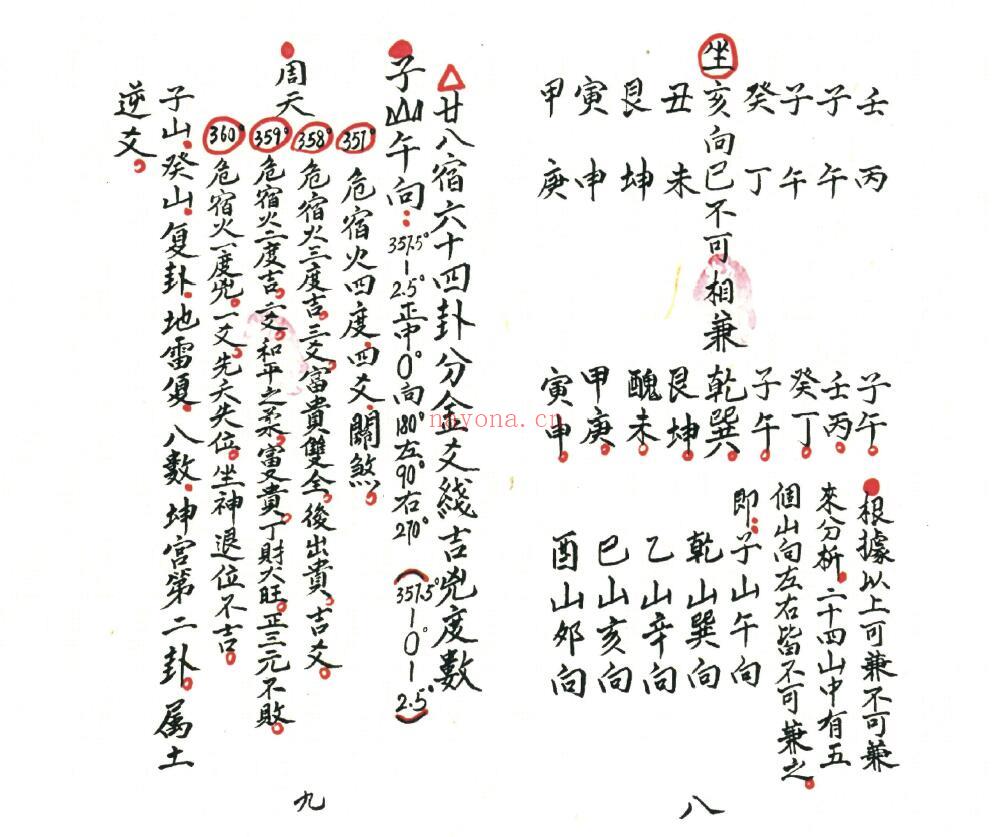 壬丙子午。
子午壬丙。
子午癸丁。
癸丁子午。
坐亥向巳不可相兼乾巽。
丑未艮坤。
艮坤醜未。
寅申甲庚。
甲庚寅申。
根據以上可兼不可兼
來分析。二十四山中有五
個山向左右皆不可兼之。
即:子山午向
乾山巽向
乙山辛向
巳山亥向
酉山卯向
八
△廿八宿六十四卦分金爻綫吉兇度數
子山午向:357.5°-2.5°正中0°向180°左90°右270°(357.5°-0°-2.5°)
357°危宿火四度.四爻.關煞。
358°危宿火三度吉.三爻.富貴雙全.後出貴.吉爻。
周天359°危宿火二度吉.二爻.和平之柔.富雙貴.丁財大旺.正三元不敗。
360°危宿火一度兇.一爻.先天失位.坐神退位不吉。
子山.癸山.复卦.地雷复.八數.坤宮第二卦.属土
逆爻。
九
nayona.cn